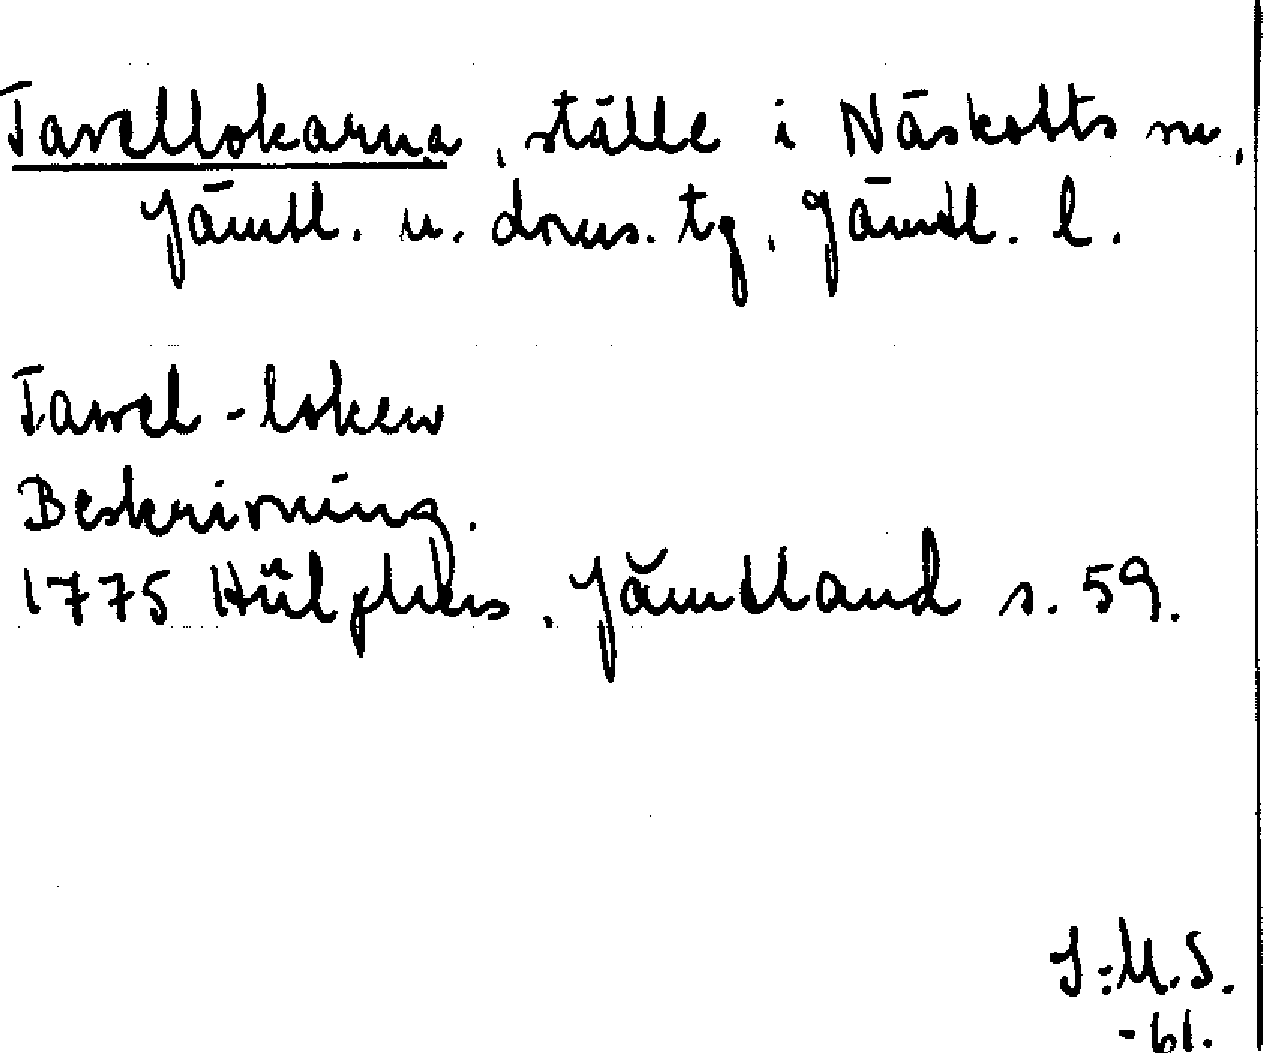 Tavellokarna, ställe i Näskotts sn,
Jämtl. n. doms. tg, Jämtl. l.
Tawel-loken
Beskrivning.
1775 Hülphers, Jämtland s. 59.
J:M.S.
-61.